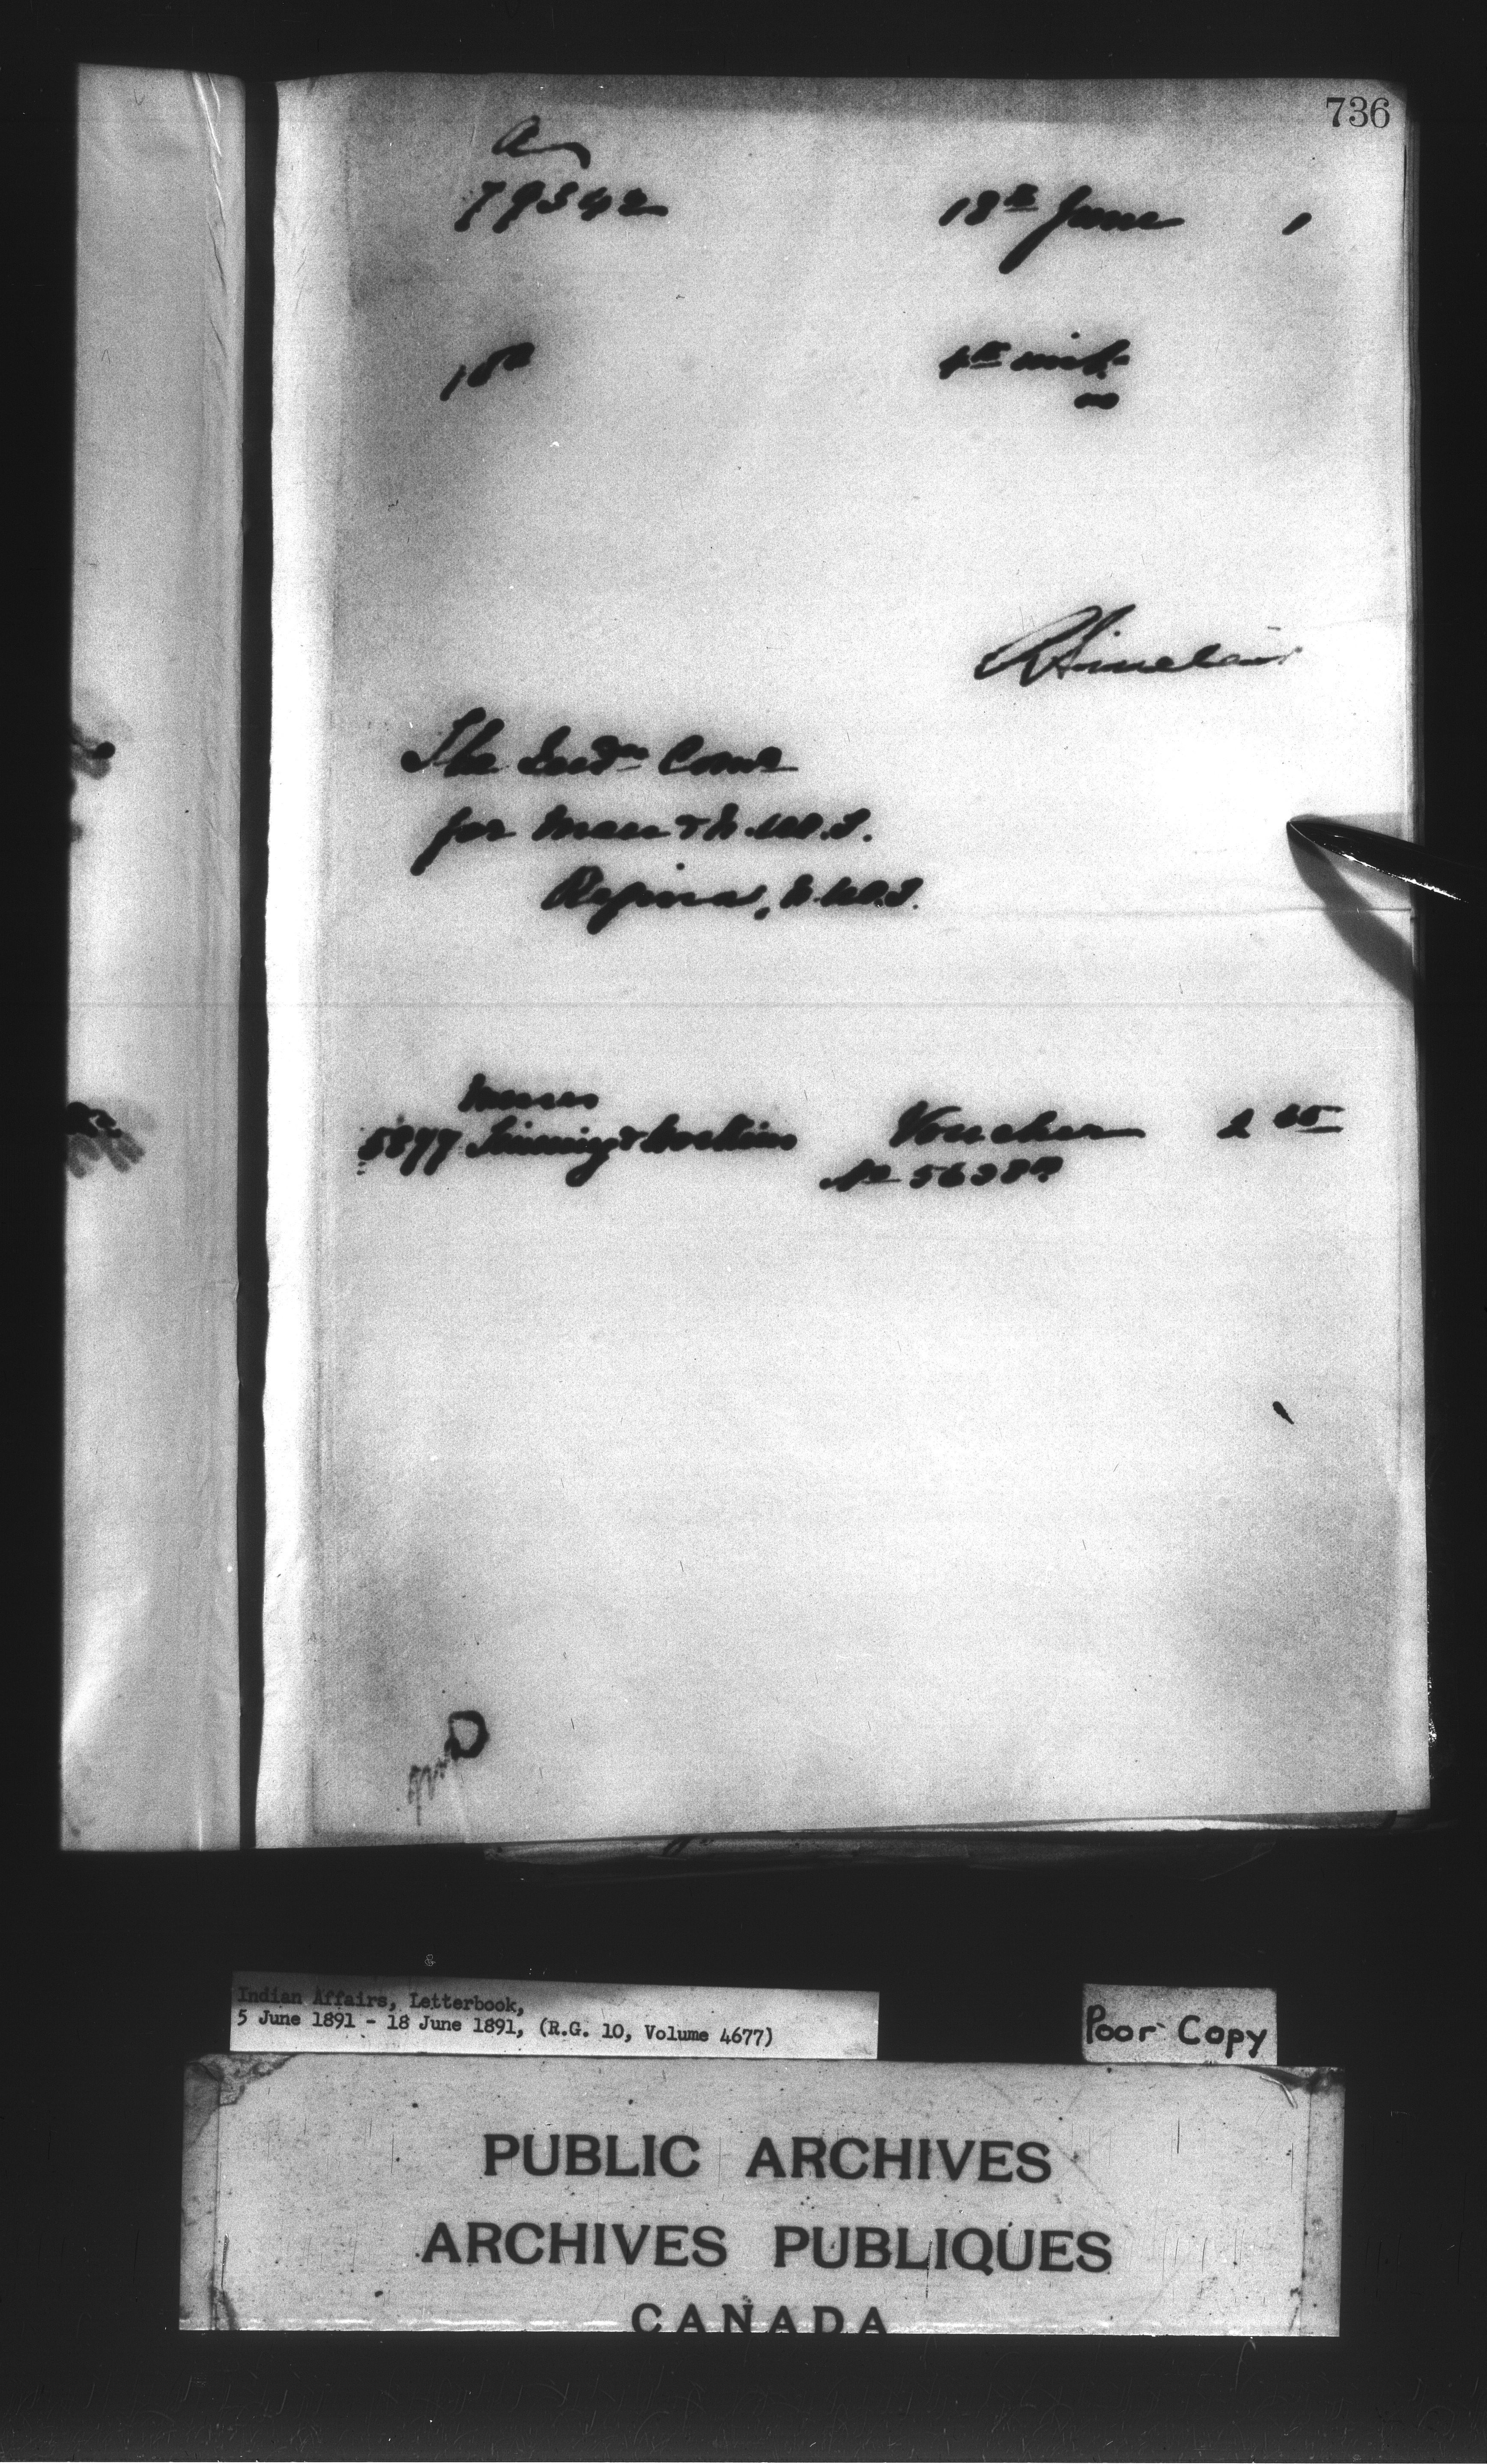 736
a
79342 18th June 1
18th 4th inst.
R Sinclair
The Indn Comr
for Man & N.W.T.
Regina, N.W.T.
Messrs
5877 Tinning & Hoskins Voucher 2 65
No 5638
Indian Affairs, Letterbook,
5 June 1891 - 18 June 1891, (R.G. 10, Volume 4677)
Poor Copy
PUBLIC ARCHIVES
ARCHIVES PUBLIQUES
CANADA